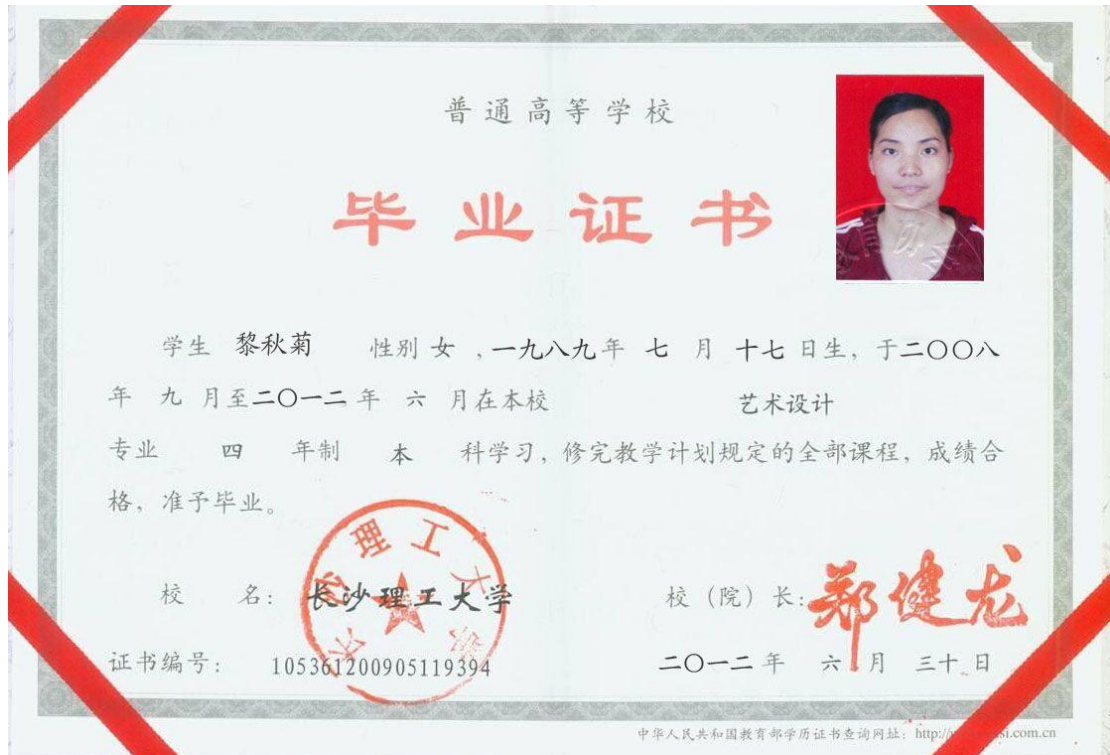 普通高等学校
毕业证书
学生 黎秋菊 性别 女 ,一九八九年 七 月 十七 日生, 于二〇〇八
年 九 月至二〇一二 年 六 月在本校 艺术设计
专业 四 年制 本 科学习, 修完教学计划规定的全部课程, 成绩合
格, 准予毕业。
理工大
校 名: 长沙理工大学 校 (院) 长: 郑健龙
证书编号: 105361200905119394 二〇一二 年 六 月 三十 日
中华人民共和国教育部学历证书查询网址: http://
si.com.cn